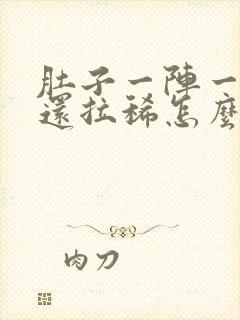 肚子一陣一
還拉稀怎麼
肉刀